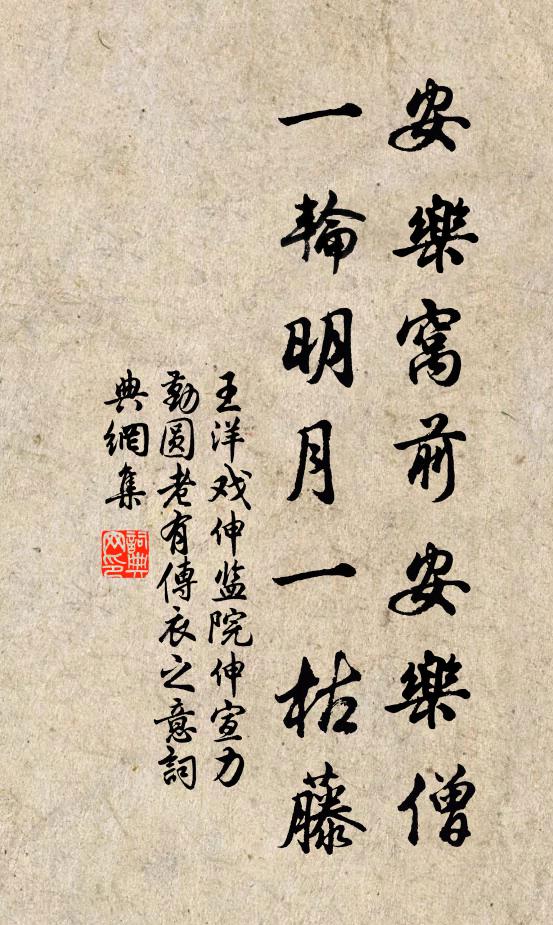 安樂窩前安樂僧
一輪明月一枯藤
王洋戏伸监院伸宣力
勤圆老有傳衣之意詞
典網集
詞典网印